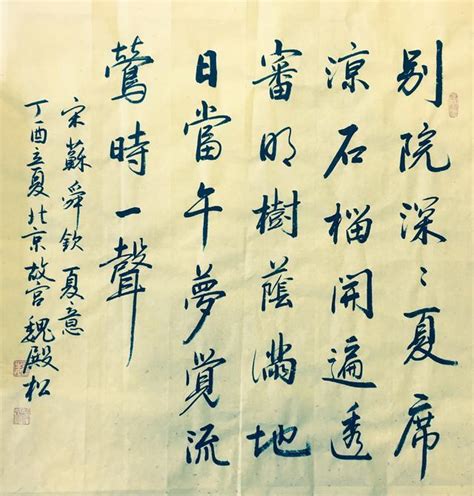 别院深〻夏席
涼石榴開遍透
審明樹蔭滿地
日當午夢覺流
鶯時一聲
宋蘇舜欽夏意
丁酉立夏北京故宫魏殿松